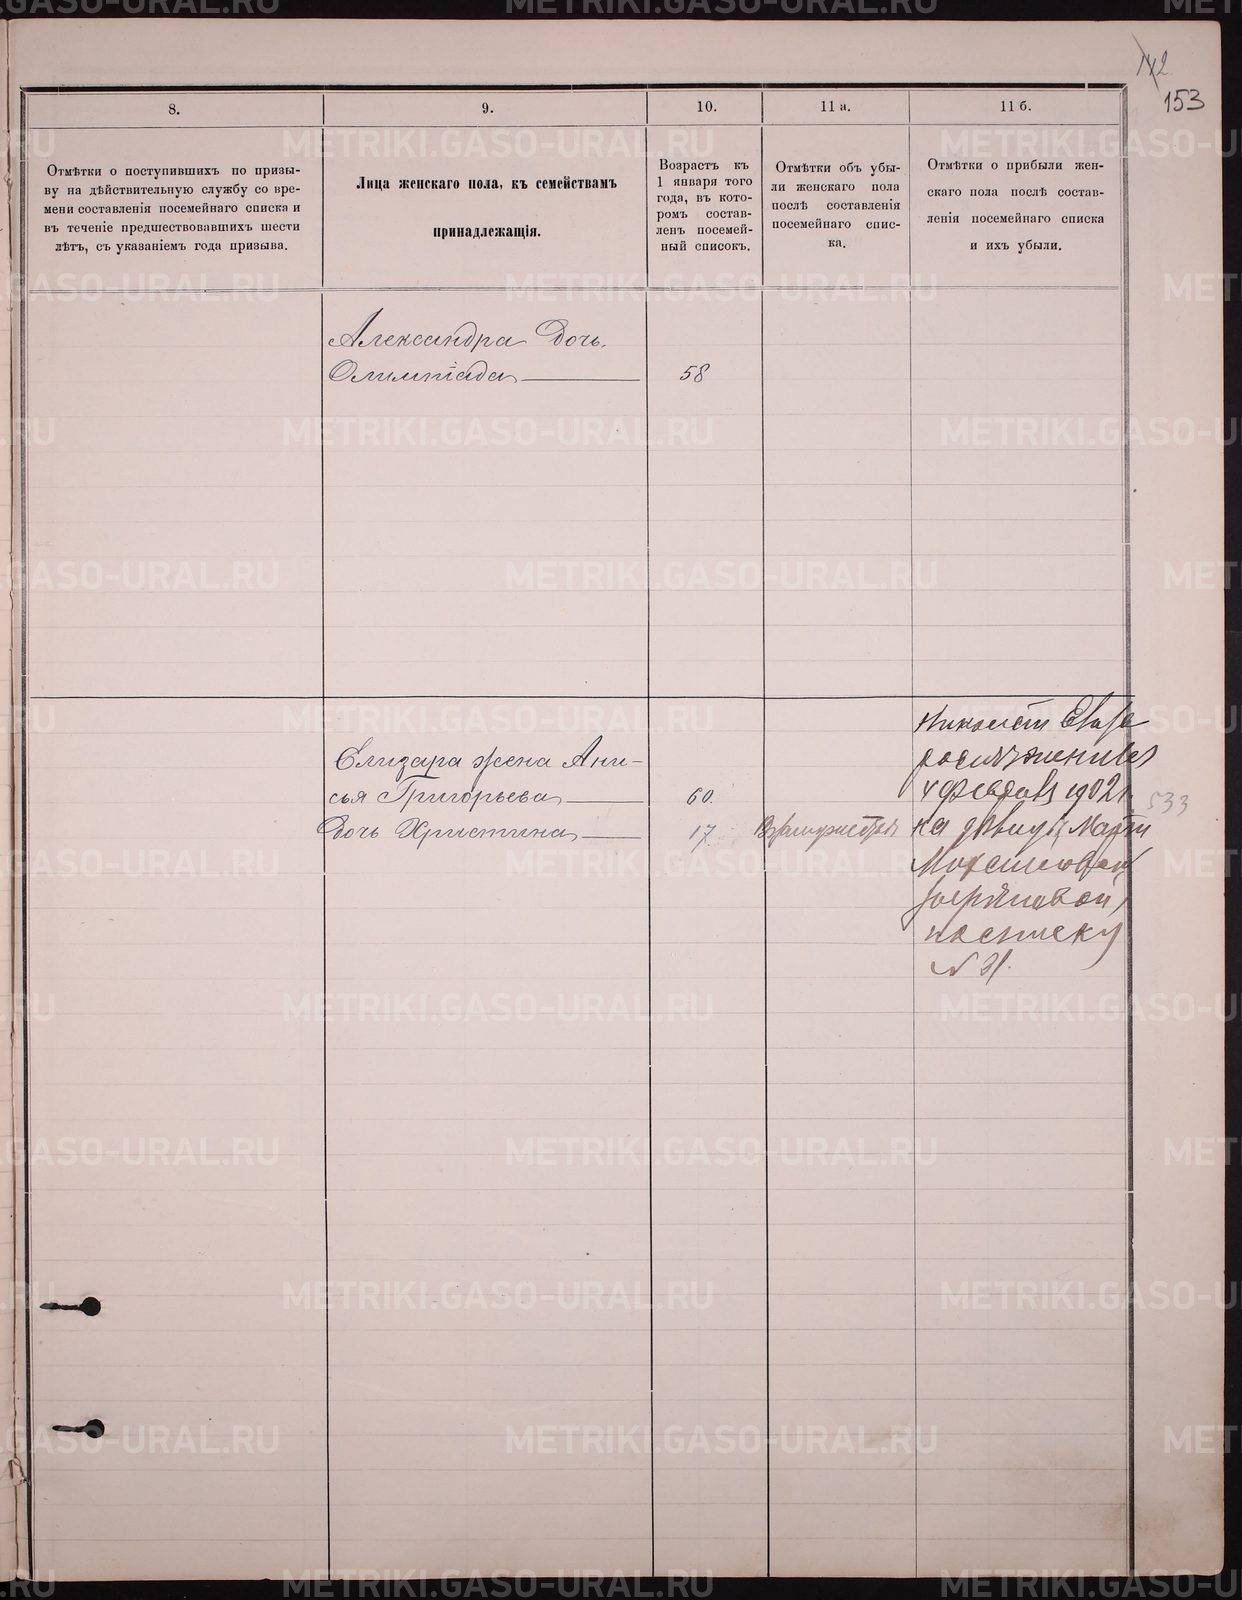 142
153
8.
9.
10.
11 а.
11 б.
Отмѣтки о поступившихъ по призы-
ву на дѣйствительную службу со вре-
мени составленія посемейнаго списка и
въ теченіе предшествовавшихъ шести
лѣтъ, съ указаніемъ года призыва.
Лица женскаго пола, къ семействамъ
принадлежащія.
Возрастъ къ
1 января того
года, въ кото-
ромъ состав-
ленъ посемей-
ный списокъ.
Отмѣтки объ убы-
ли женскаго пола
послѣ составленія
посемейнаго спис-
ка.
Отмѣтки о прибыли жен-
скаго пола послѣ состав-
ленія посемейнаго списка
и ихъ убыли.
Александра Дочь
Олимпіада 58
Елизара жена Ани-
сья Григорьева 60
Дочь Христина 17
1902 г.
на дѣвицѣ Марѳи
по списку
N 31.
533
METRIKI.GASO-URAL.RU